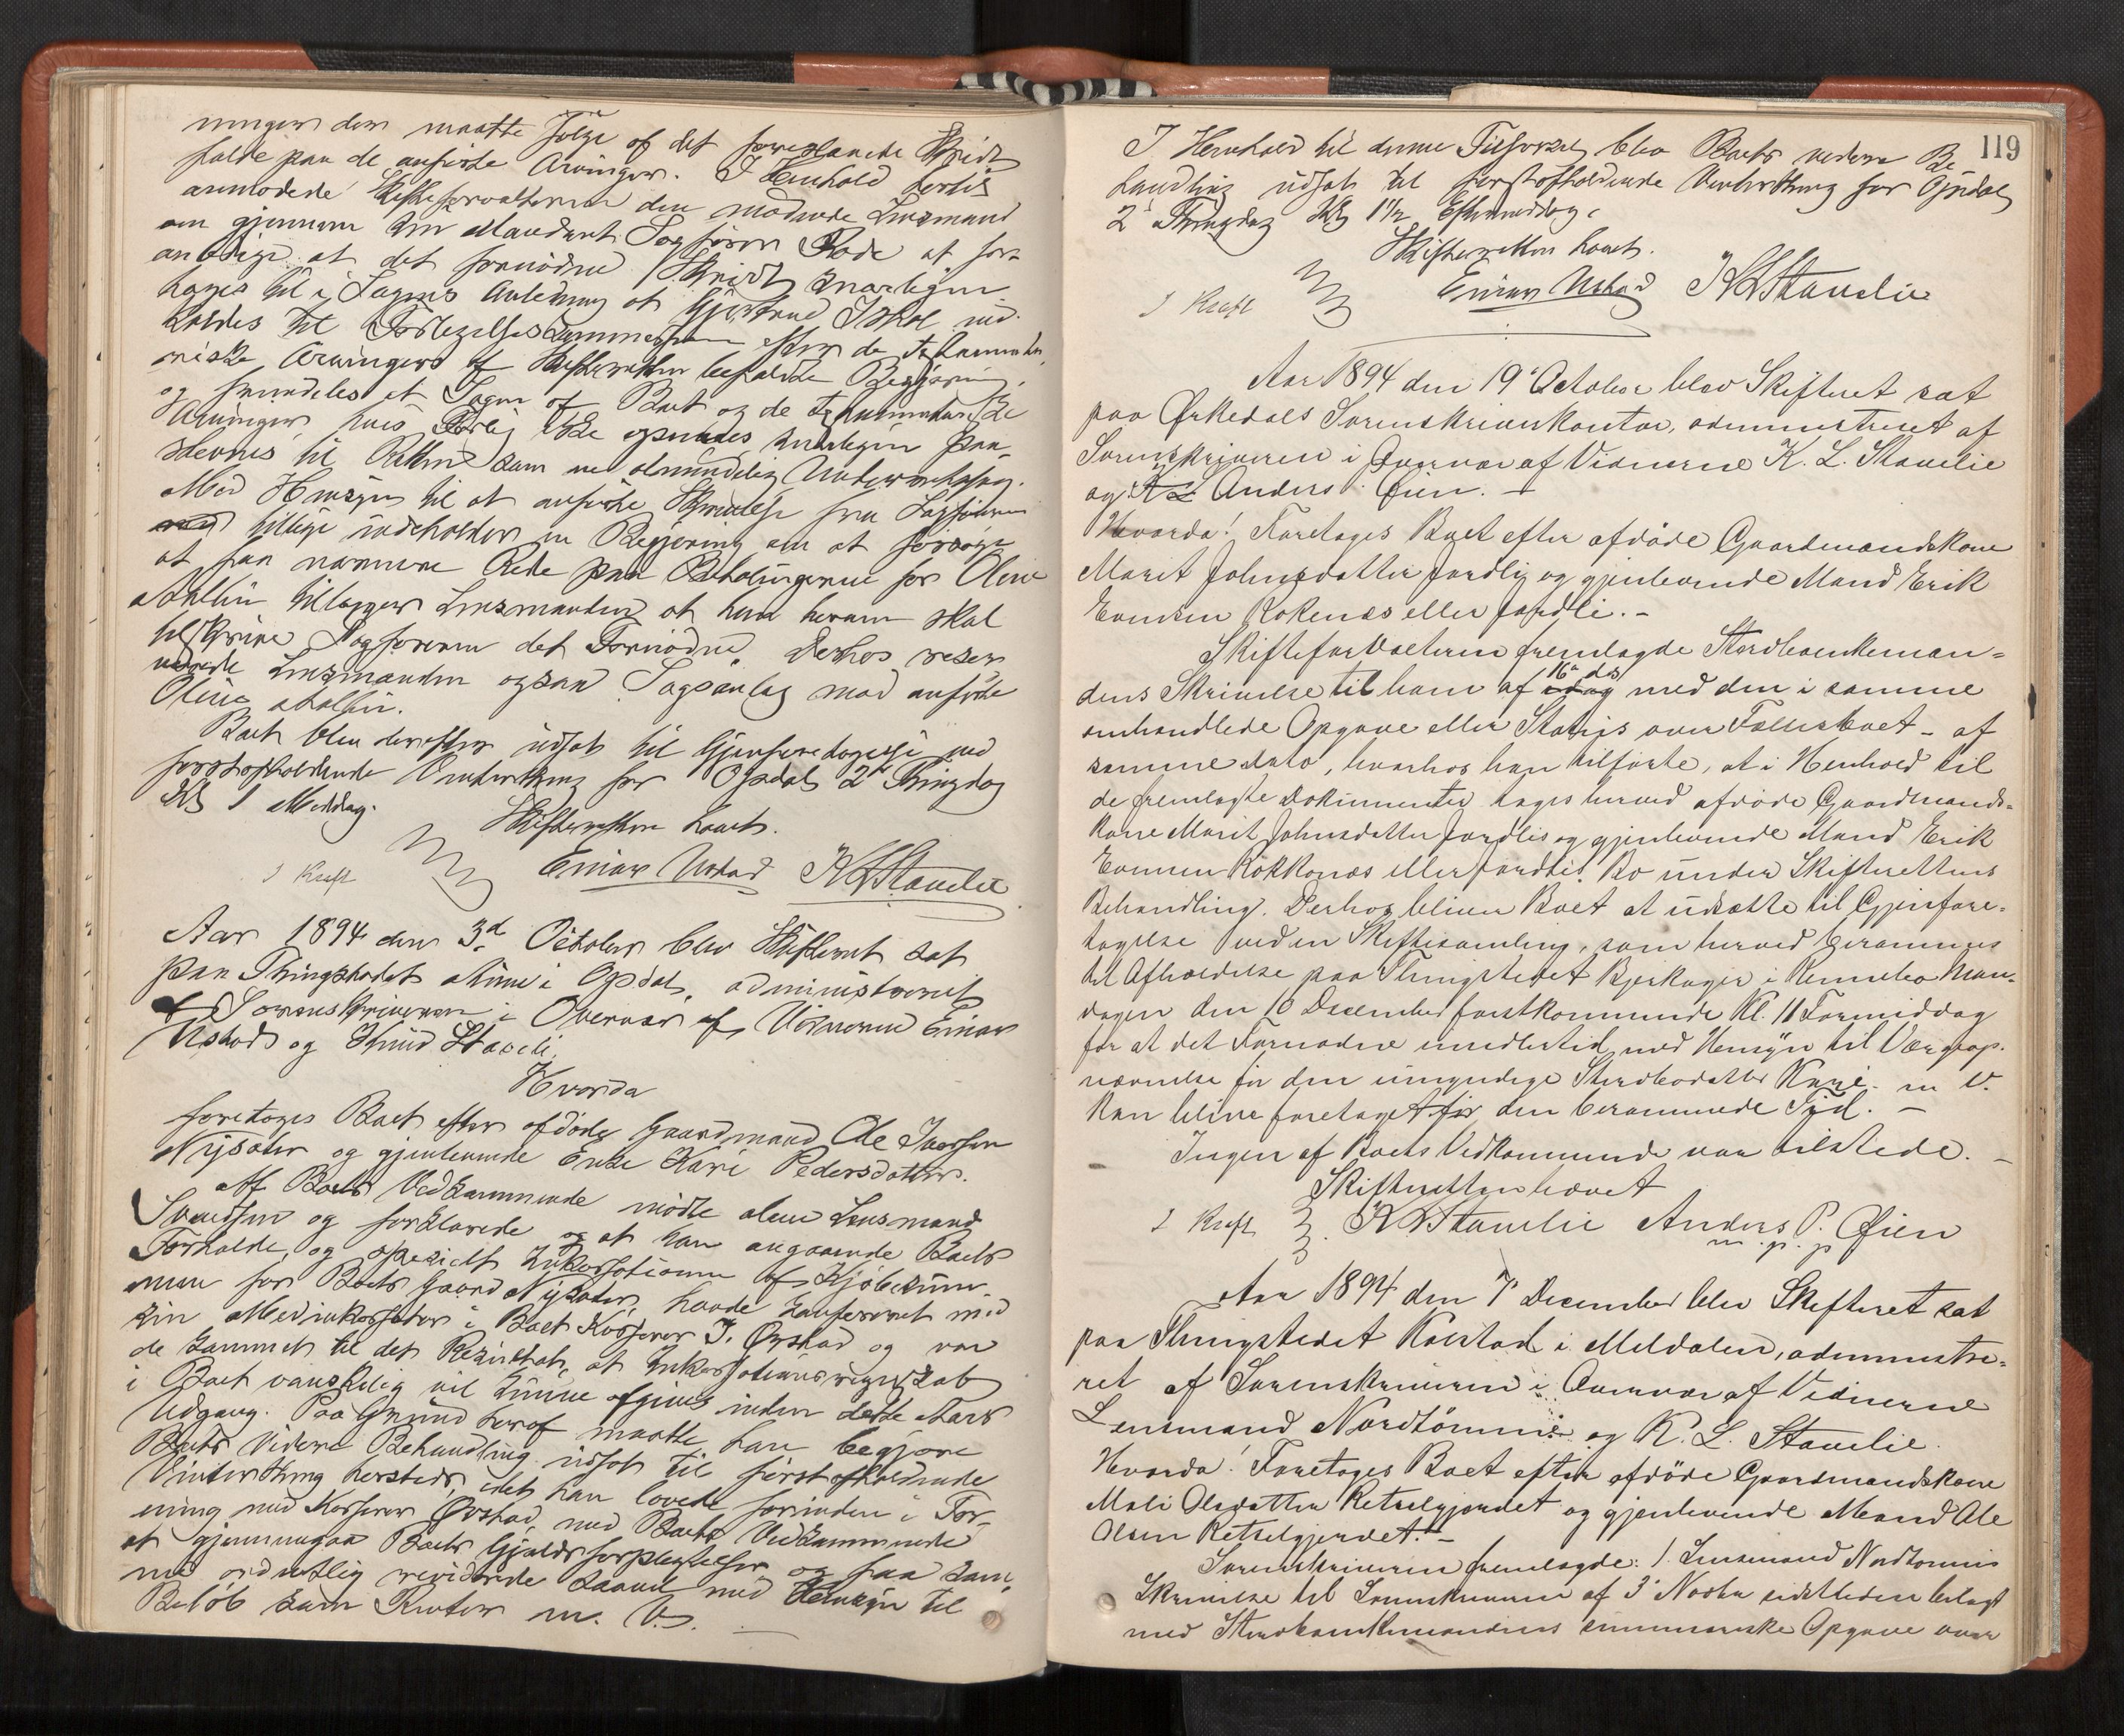 ninger der maatte følge af det forestaaende Skridt
falde paa de anførte Arvinger. I Henhold hertil
anmodede Skifteforvalteren den mødende Lensmand
om gjennem sin Mandant Sagfører Rode at for-
anledige at det fornødne Skridt snarligen
tages til i Sagens Anledning at Gjertrud ind-
kaldes til Forligelseskommissionen efter de
Arvingers af Skifteretten Begjæring,
og fremdeles at Sagen af Boet og de
Arvinger, hvis Forlig ikke opnaaes, snarligen paa-
stevnes til Retten som en almindelig
Med Hensyn til at anførte Skrivelse fra Sagføreren
tillige indeholder en Begjæring om at forsøge
at faa nærmere Rede paa Betalingerne for Oline
tillægger Lensmanden at han herom skal
tilskrive Sagføreren det Fornødne. Derhos reser-
verede Lensmanden ogsaa Sagsanlæg mod anførte
Oline
Boet blev derefter udsat til Gjenforetagelse ved
førstafholdende Vinterthing for Opdal 2den Thingdag
Kl 1 Middag.
Skifteretten hævet.
J Kraft Einar Ustad K L Stavelie
Aar 1894 den 3die October blev Skifteret sat
paa Thingstedet Aune i Opdal, administreret
af Sorenskriveren i Overvær af Vidnerne Einar
Ustad og Knud Staveli.
Hvorda
foretages Boet efter afdøde Gaardmand Ole Iversen
Nysæter og gjenlevende Enke Kari Pedersdatter.
Af Boets Vedkommende mødte alene Lensmand
Svendsen og forklarede og at han angaaende Boets
Forholde, og specielt Inkassationen af Kjøbesum-
men for Boets Gaard Nysæter, havde konfereret med
sin Medinkassator i Boet Kasserer J. Ørstad og var
de kommet til det Resultat, at Inkassationsregnskab
i Boet vanskelig vil kunne afgives inden dette Aars
Udgang. Paa Grund heraf maatte han begjære
Boets videre Behandling udsat til førstafholdende
Vinterthing hersteds, idet han lovede forinden i For-
ening med Kasserer Ørstad, med Boets Vedkommende
at gjennemgaa Boets Gjældsforpligtelser og faa sam-
me ordentlig reviderede saavel med Hensyn til
Beløb som Renter m. V.
119
I Henhold til denne Tilførsel blev Boets videre Be
handling udsat til førstafholdende Vinterthing for Opdal
2 Thingdag Kl 1½ Eftermiddag.
Skifteretten hævet.
J Kraft Einar Ustad K L Stavelie
Aar 1894 den 19' October blev Skifteret sat
paa Ørkedals Sorenskriverkontor, administreret af
Sorenskriveren i Overvær af Vidnerne K. L. Stavelie
og Anders Øien. –
Hvorda! Foretages Boet efter afdøde Gaardmandskone
Marit Johnsdatter Jordli og gjenlevende Mand Erik
Evensen Rokenæs eller Jordli. –
Skifteforvalteren fremlagde Stervboenkeman-
dens Skrivelse til ham af 16' ds med den i samme
omhandlede Opgave eller Status over Fællesboet – af
samme Dato, hvorhos han tilførte, at i Henhold til
de fremlagte Dokumenter tages herved afdøde Gaardmands-
kone Marit Johnsdatter Jordlis og gjenlevende Mand Erik
Evensen Rokkonæs eller Jordlis Bo under Skifterettens
Behandling. Derhos bliver Boet at udsætte til Gjenfore-
tagelse ved en Skiftesamling, som herved berammes
til Afholdelse paa Thingstedet Bjerkager i Rennebo Man-
dagen den 10 December førstkommende Kl. 11 Formiddag
for at det Fornødne imidlertid med Hensyn til Værgeop-
nævnelse for den umyndige Stervbodatter Kari m. V.
kan blive foretaget før den berammede Tid. –
Ingen af Boets Vedkommende var tilstede. –
Skifteretten hævet
J Kraft K L Stavelie Anders P. Øien
m. p. p.
Aar 1894 den 7' December blev Skifteret sat
paa Thingstedet Kalstad i Meldalen, administre-
ret af Sorenskriveren i Overvær af Vidnerne
Lensmand Nordtømme og K. L. Stavelie.
Hvorda! Foretages Boet efter afdøde Gaardmandskone
Mali Olsdatter Retselgjerdet og gjenlevende Mand Ole
Olsen Retselgjerdet. –
Sorenskriveren fremlagde: 1. Lensmand Nordtømmes
Skrivelse til Sorenskriveren af 3' Novbr sidstleden belagt
med Stervboenkemandens summariske Opgave over